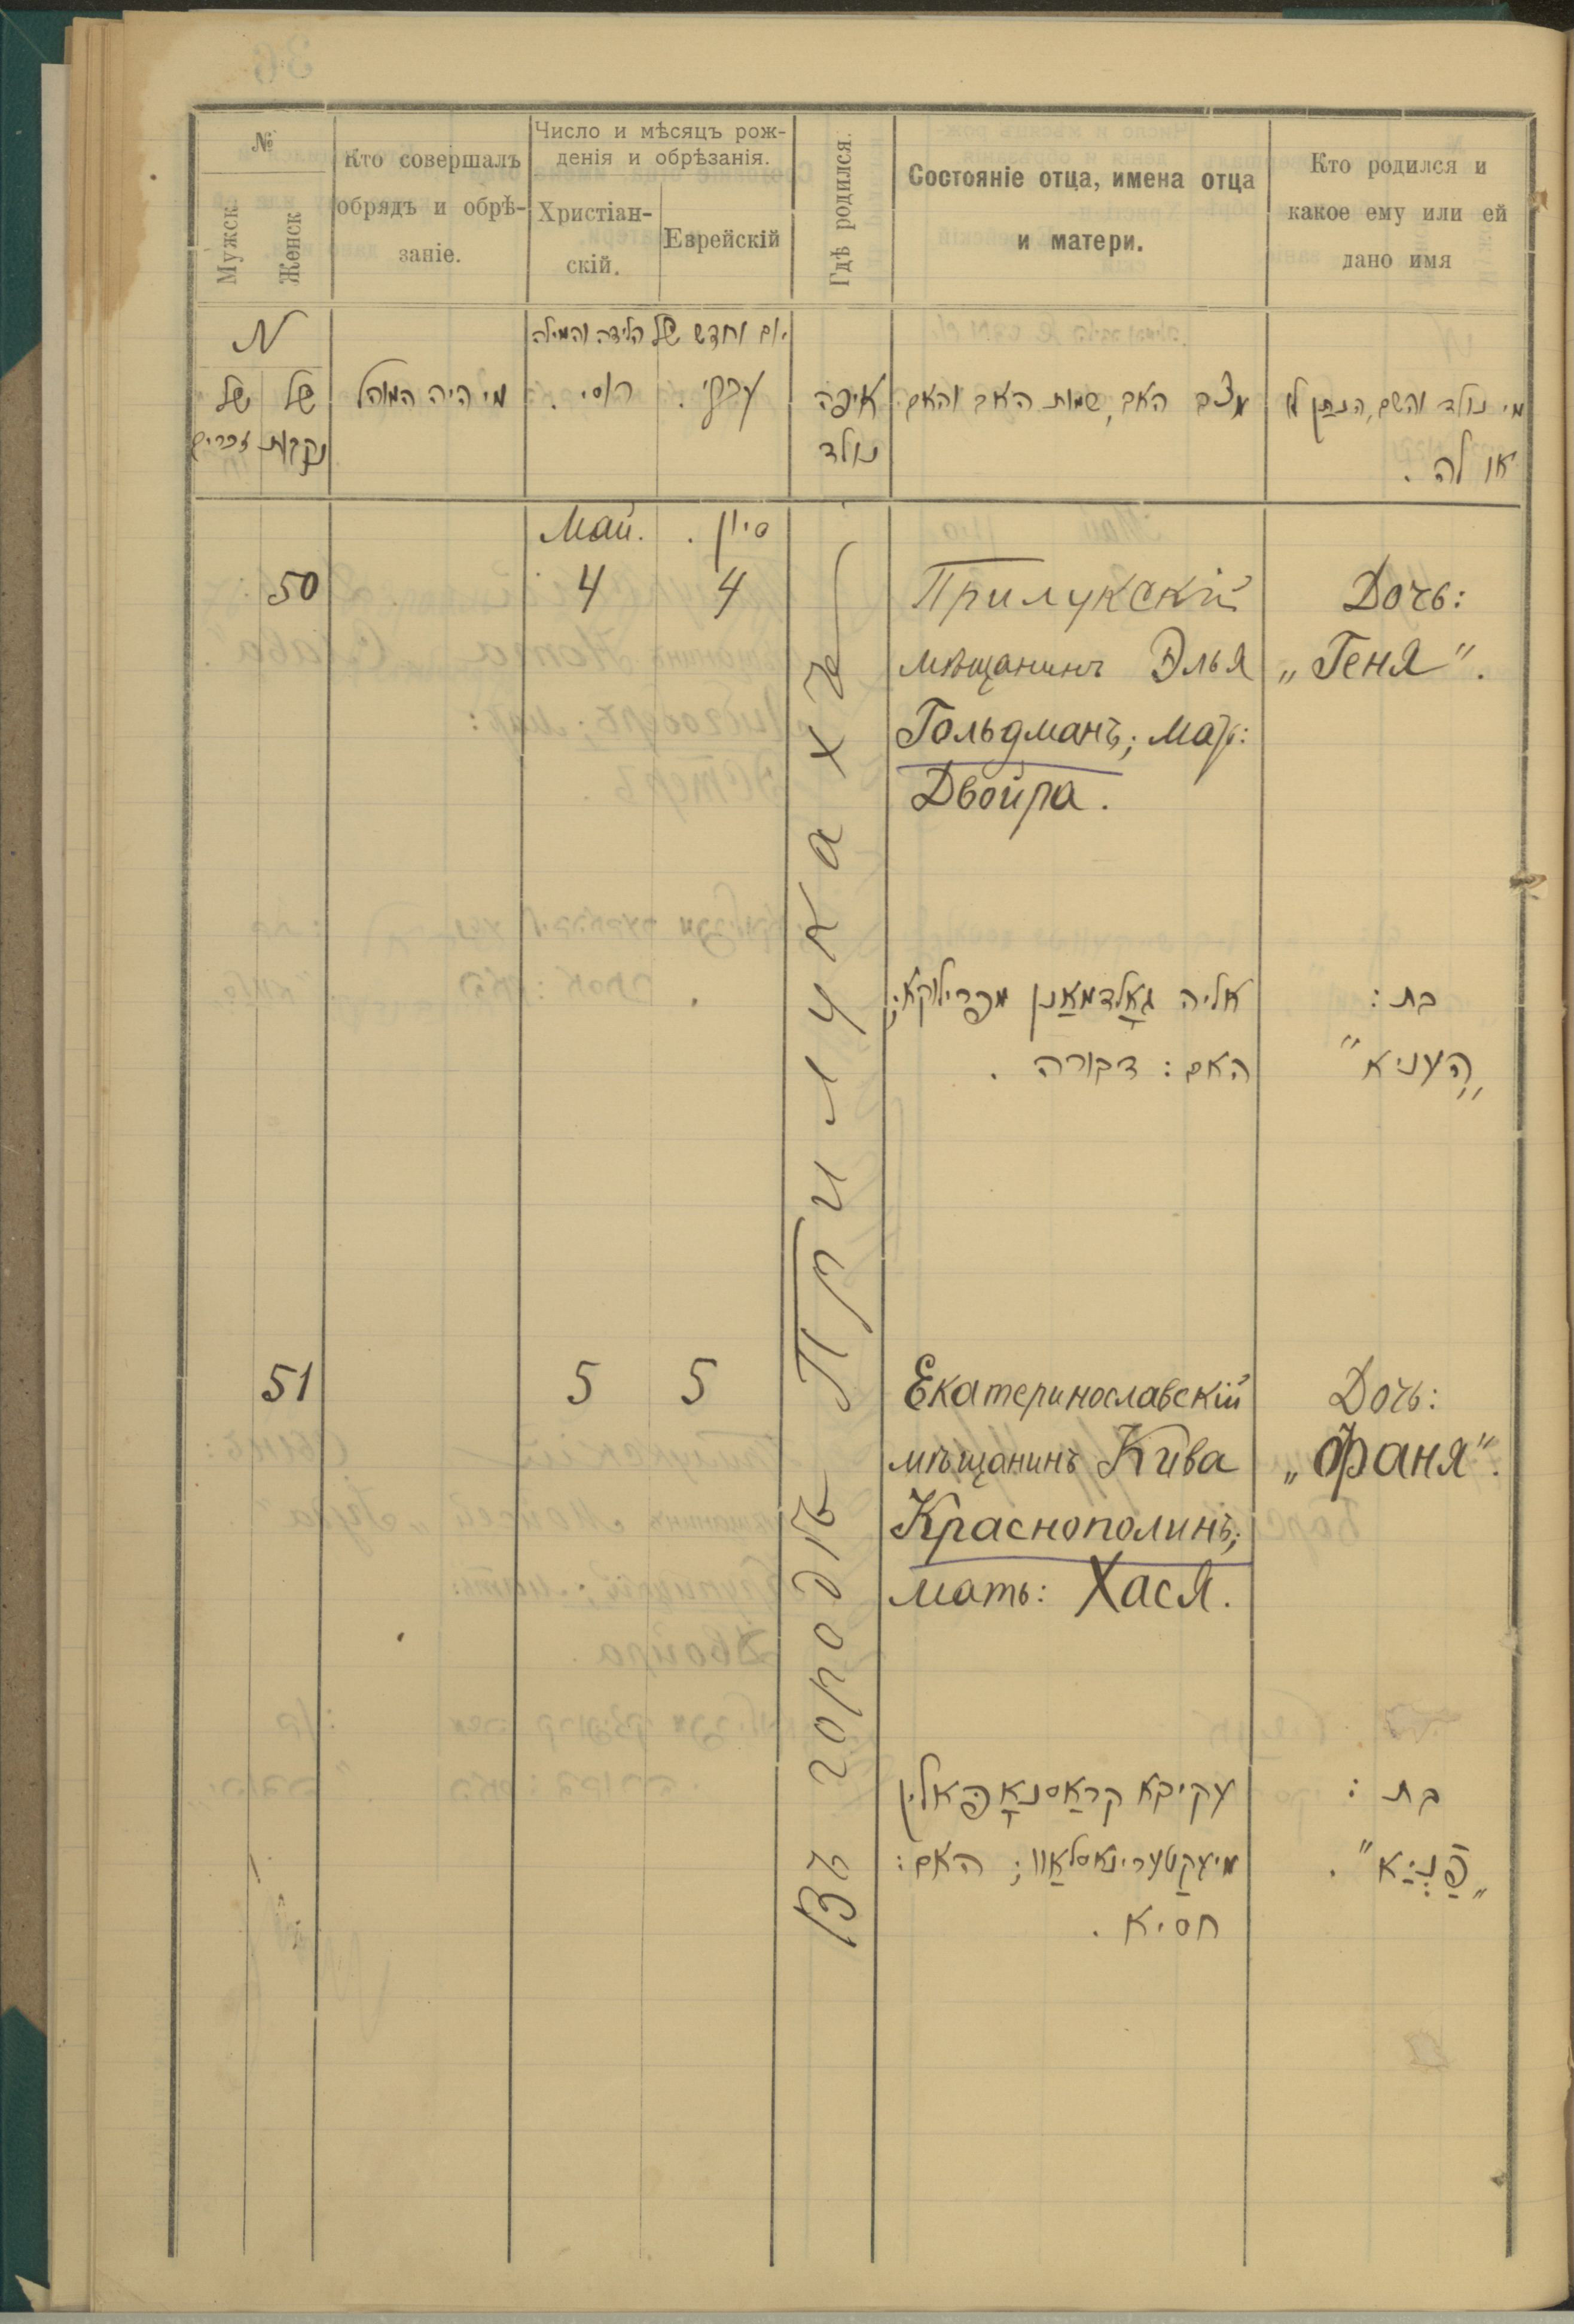 №
Мужск
Женск
Кто совершалъ
обрядъ и обрѣ-
заніе.
Число и мѣсяцъ рож-
денія и обрѣзанія.
Христіан-
скій.
Еврейскій
Гдѣ родился.
Состояніе отца, имена отца
и матери.
Кто родился и
какое ему или ей
дано имя
N
של
זכרים
של
נקבות
מי היה המוהל
יום וחדש של הלידה והמילה
רוסי.
עברי.
איפה
נולד
מצב האב, שמות האב והאם.
מי נולד והשם, הנתן לו
או לה.
Май.
סיון.
50
4
4
Прилукскій
мѣщанинъ Элья
Гольдманъ; мать:
Двойра.
Дочь:
„Геня".
אליה גאָלדמאַן מפרילוקא;
האם: דבורה.
בת:
„העניא"
Въ городѣ Прилукахъ
51
5
5
Екатеринославскій
мѣщанинъ Кива
Краснополинъ;
мать: Хася.
Дочь:
„Фаня".
עקיבא קראַסנאָפּאלין
מיעקַטערינאסלאַוו; האם:
חסיא.
בת:
„פַנְיַא".